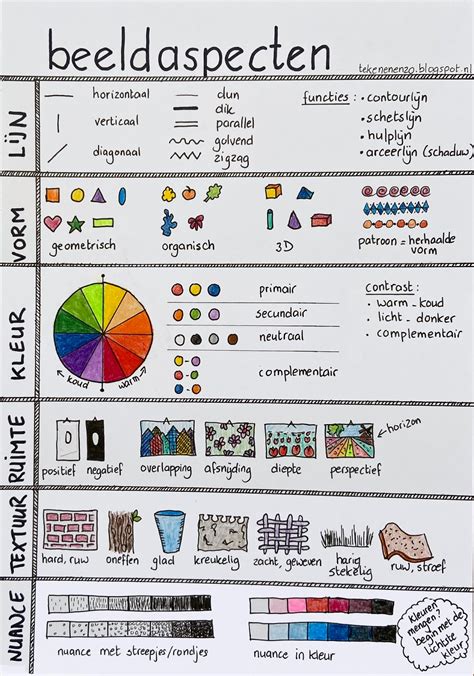 beeldaspecten
tekenenenzo.blogspot.nl
LIJN
horizontaal
verticaal
diagonaal
dun
dik
parallel
golvend
zigzag
functies : • contourlijn
• schetslijn
• hulplijn
• arceerlijn (schaduw)
VORM
geometrisch
organisch
3D
patroon = herhaalde
vorm
KLEUR
← koud
warm →
primair
secundair
neutraal
complementair
Contrast :
• warm - koud
• licht - donker
• complementair
RUIMTE
positief
negatief
overlapping
afsnijding
diepte
perspectief
horizon
TEXTUUR
hard, ruw
oneffen
glad
kreukelig
zacht, geweven
harig
stekelig
ruw, stroef
NUANCE
nuance met streepjes/rondjes
nuance in kleur
Kleuren
mengen?
begin met de
lichtste
kleur!